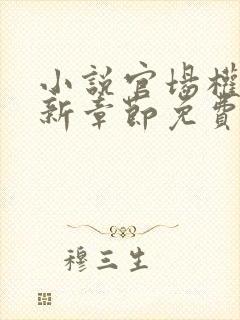 小說官場權
新章節免費
穆三生